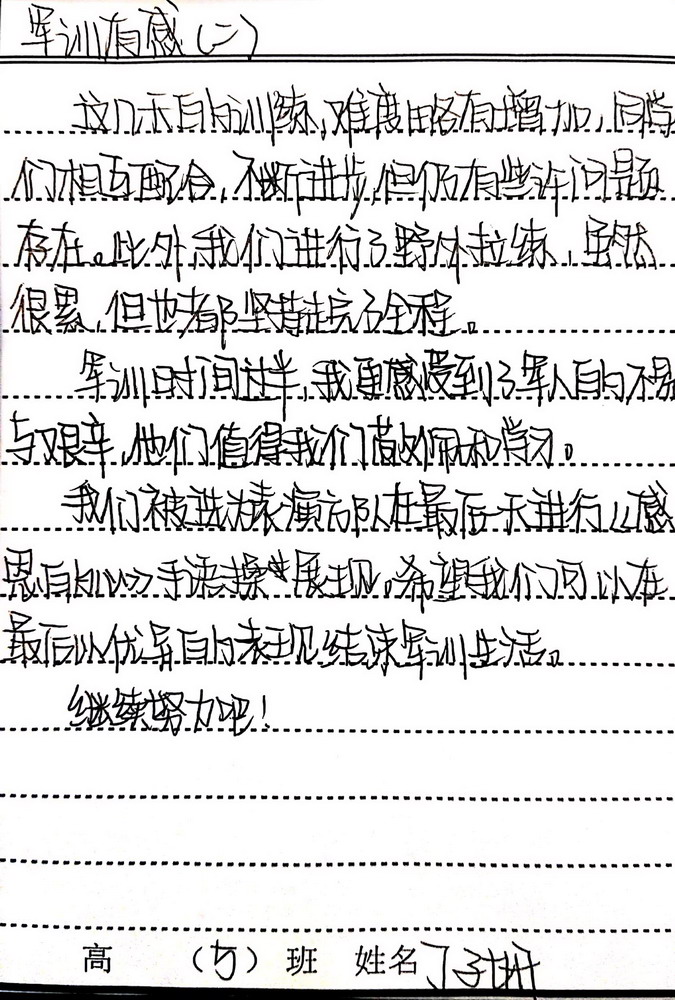 军训有感(二)
这几天的训练,难度略有增加,同学
们相互配合,不断进步,但仍有些许问题
存在。此外,我们进行了野外拉练,虽然
很累,但也都坚持走完了全程。
军训时间过半,我更感受到了军人的不易
与艰辛,他们值得我们敬佩和学习。
我们被选为表演方队在最后一天进行《感
恩的心》手语操展现。希望我们可以在
最后以优异的表现结束军训生活。
继续努力吧!
高 ( ) 班 姓名丁子